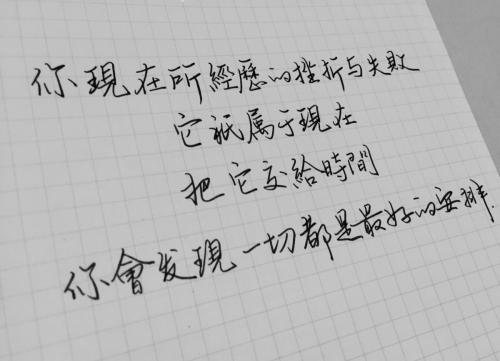 你现在所經歷的挫折与失敗
它祇属于現在
把它交給時間
你會发現一切都是最好的安排.